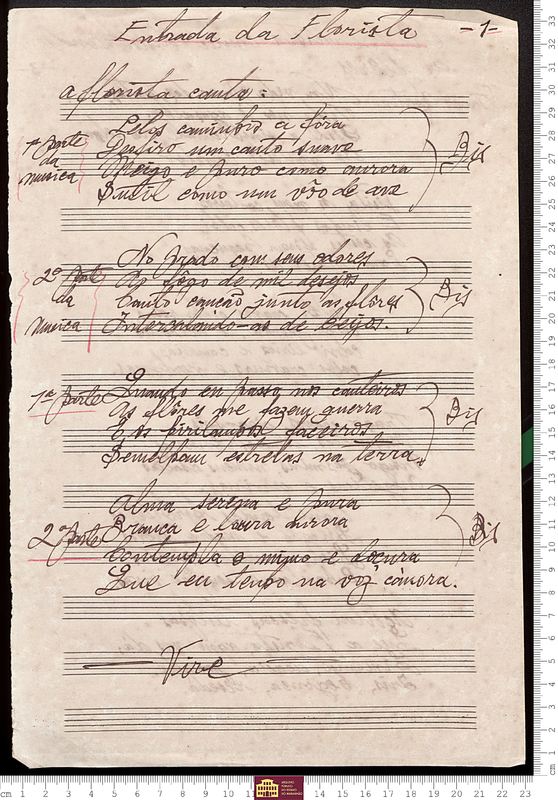 Entrada da Florista -1-
a florista canta:
1ª parte da musica
Pelos caminhos a fóra
Desfiro um canto suave
Meigo e puro como aurora
Sutil como um vôo de ave
Bis
2ª parte da musica
No prado com seus odores
Ao fôgo de mil desejos
Canto canção junto as flôres
Intercalando-as de beijos.
Bis
1ª parte
Quando eu passo nos canteiros
As flôres me fazem guerra
E os pirilampos faceiros
Semelham estrelas na terra.
Bis
2ª parte
Alma serena e pura
Branca e loura aurora
Contempla o mimo e doçura
Que eu tenho na voz canora.
Bis
Vire
cm 1 2 3 4 5 6 7 8 9 10 11 12 13 14 15 16 17 18 19 20 21 22 23
cm 1 2 3 4 5 6 7 8 9 10 11 12 13 14 15 16 17 18 19 20 21 22 23 24 25 26 27 28 29 30 31 32 33